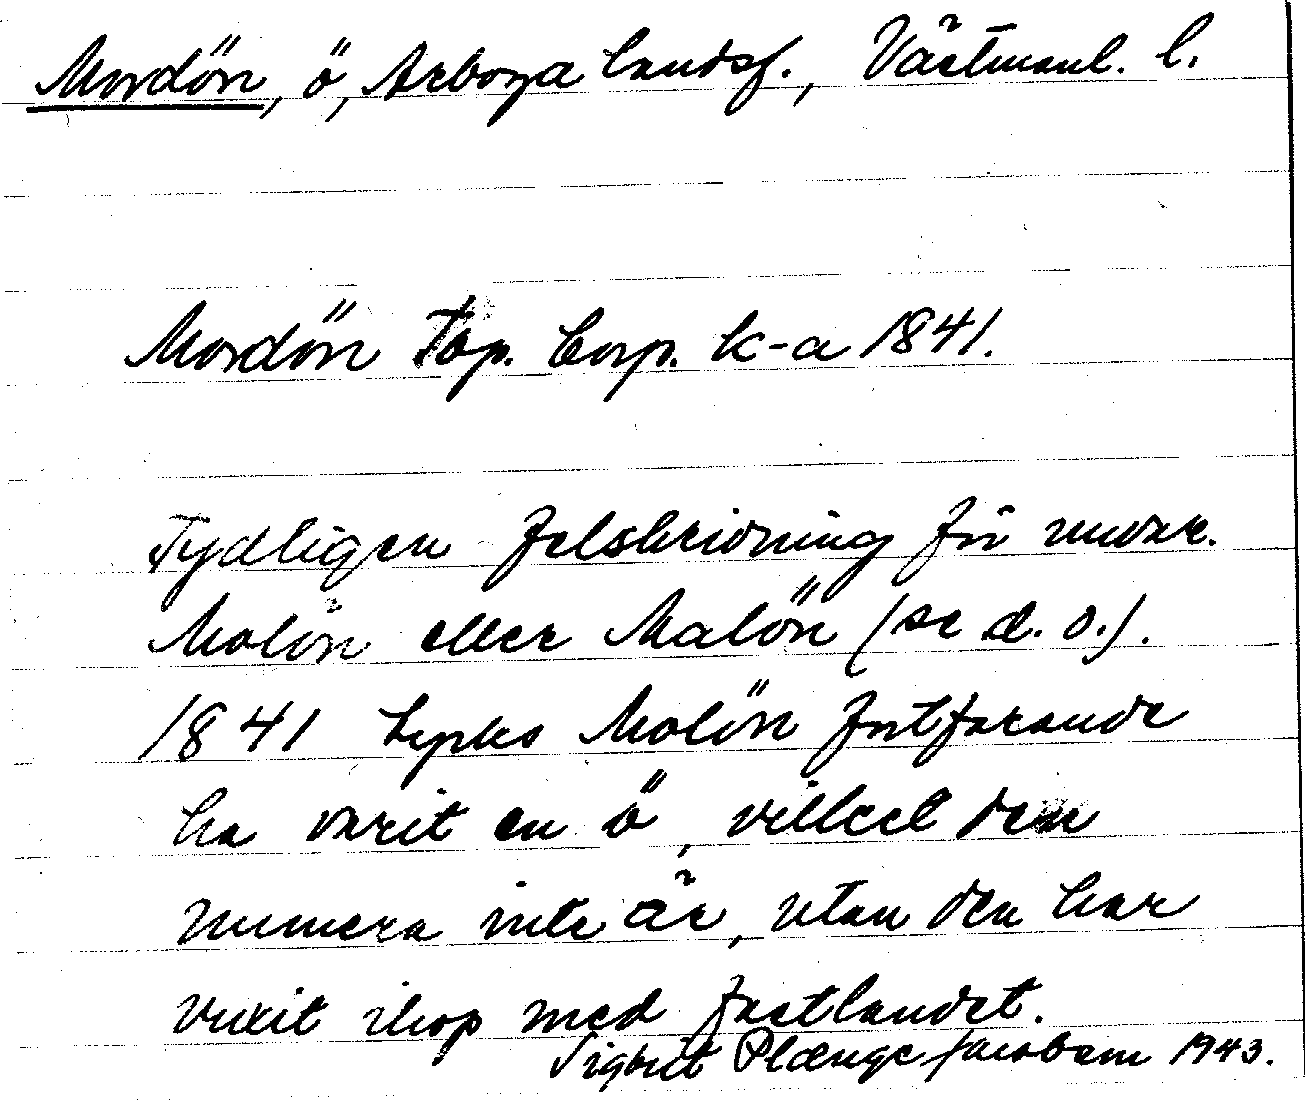 Mordön, ö, Arboga landsf., Västmanl. l.
Mordön Top. Corp. k-a 1841.
Tydligen felskrivning för nuvar.
Molön eller Malön (se d. o.).
1841 tycks Molön fortfarande
ha varit en ö, vilket den
numera inte är, utan den har
vuxit ihop med fastlandet.
Sigbrit Plænge Jacobson 1943.